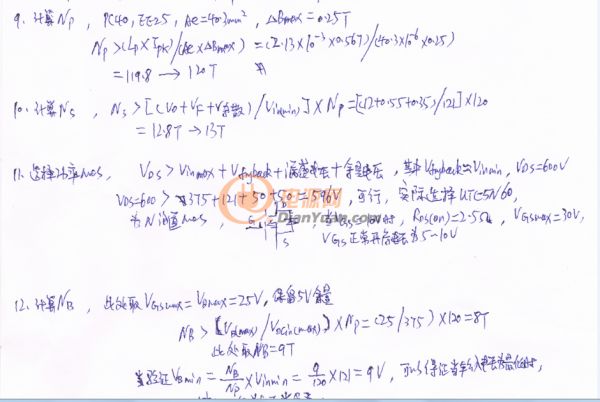 9. 计算Np, PC40, EE25, Ae=40.3mm², ΔBmax=0.25T
Np>(Lp×Ipk)/(Ae×ΔBmax)=(2.13×10⁻³×0.567)/(40.3×10⁻⁶×0.25)
=119.8→120T
10. 计算Ns, Ns>[(Vo+VF+V余数)/Vin(min)]×Np=[(12+0.55+0.35)/121]×120
=12.8T→13T
11. 选择功率MOS, VDS>Vinmax+Vflyback+漏感电压+余量电压, 其中Vflyback≈Vinmin, VDS=600V
VDS=600>375+121+50+50=596V, 可行, 实际选择UTC5N60,
为N沟道MOS, G D S 当VGS=10V时, RDS(on)=2.5Ω, VGSmax=30V,
VGS正常开启电压为5~10V
电源网
DianYuan.com
12. 计算NB, 此处取VGSmax=VBmax=25V, 保留5V余量
NB>[VB(max)/VDCin(max)]×Np=(25/375)×120=8T
此处取NB=9T
验证VBmin=NB/Np×Vinmin=9/120×121=9V, 可以保证当输入电压为最低时,